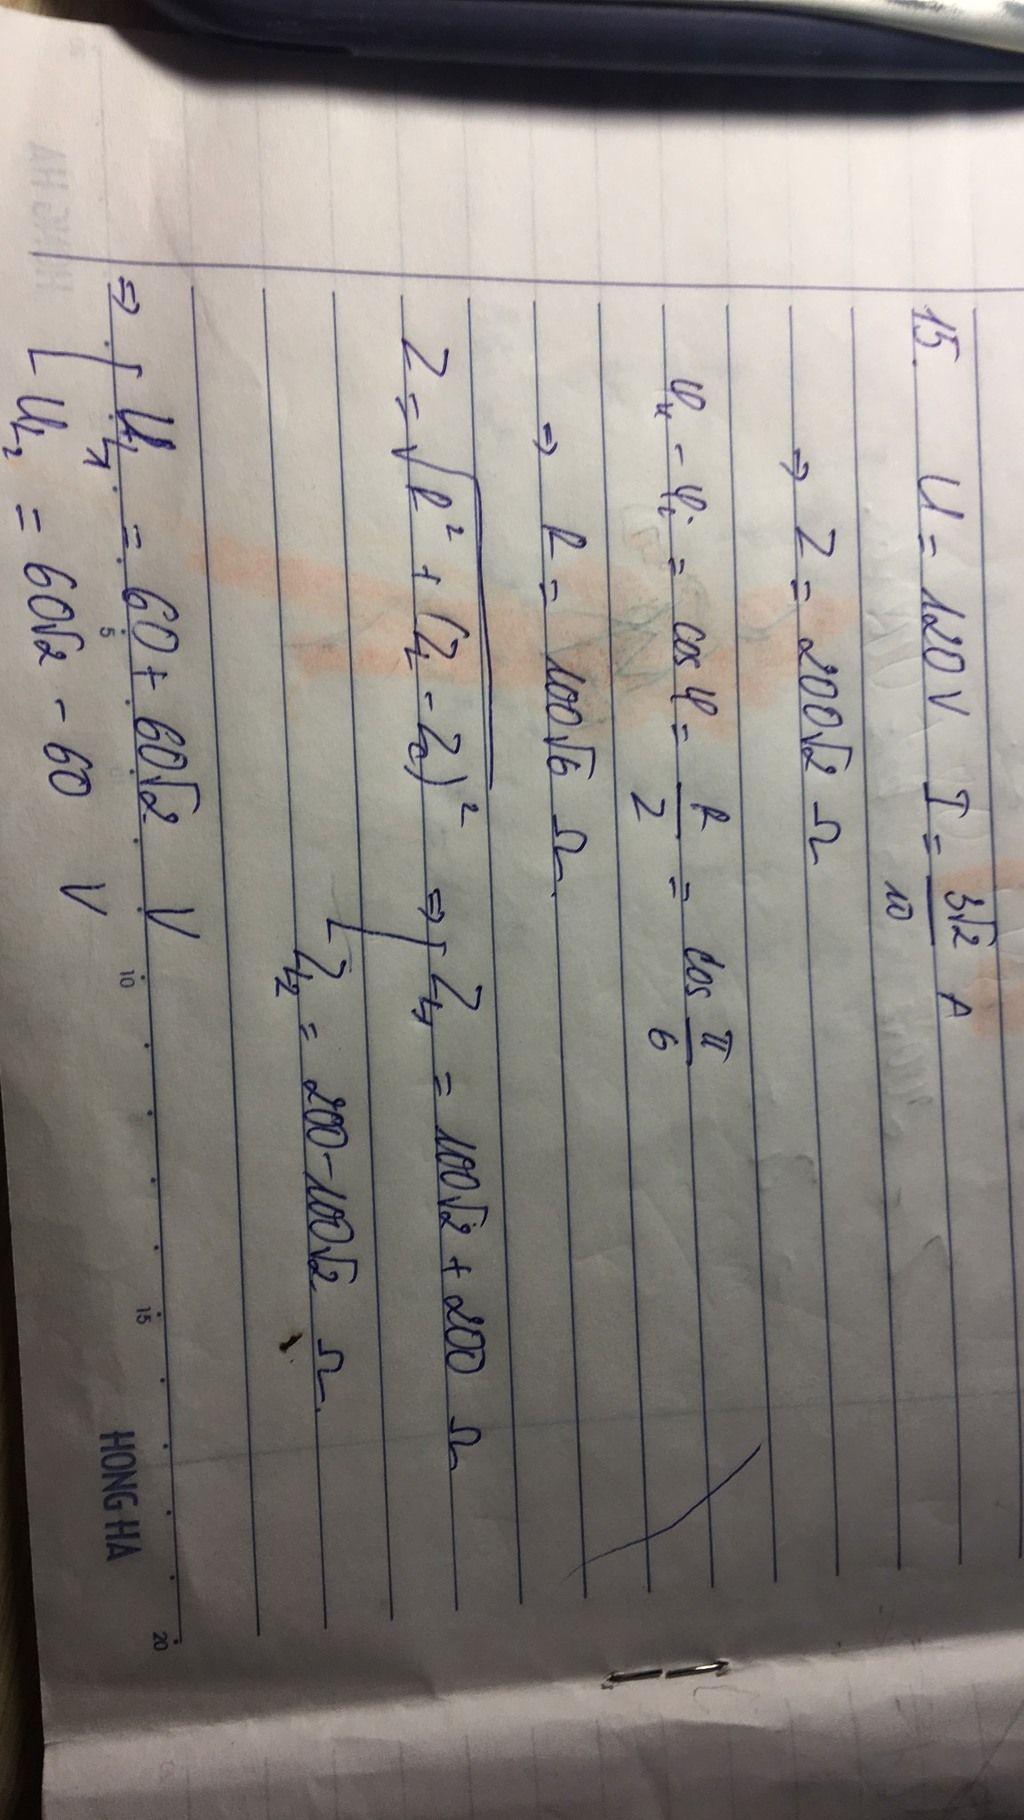 15. U = 120 V I = 3√2/10 A
⇒ Z = 200√2 Ω
φu - φi = cos φ = R/Z = cos π/6
⇒ R = 100√6 Ω.
Z = √(R² + (ZL - ZC)²) ⇒ [ ZL1 = 100√2 + 200 Ω
ZL2 = 200 - 100√2 Ω.
⇒ [ UL1 = 60 + 60√2 V
UL2 = 60√2 - 60 V
5 10 15 20
HONG HA